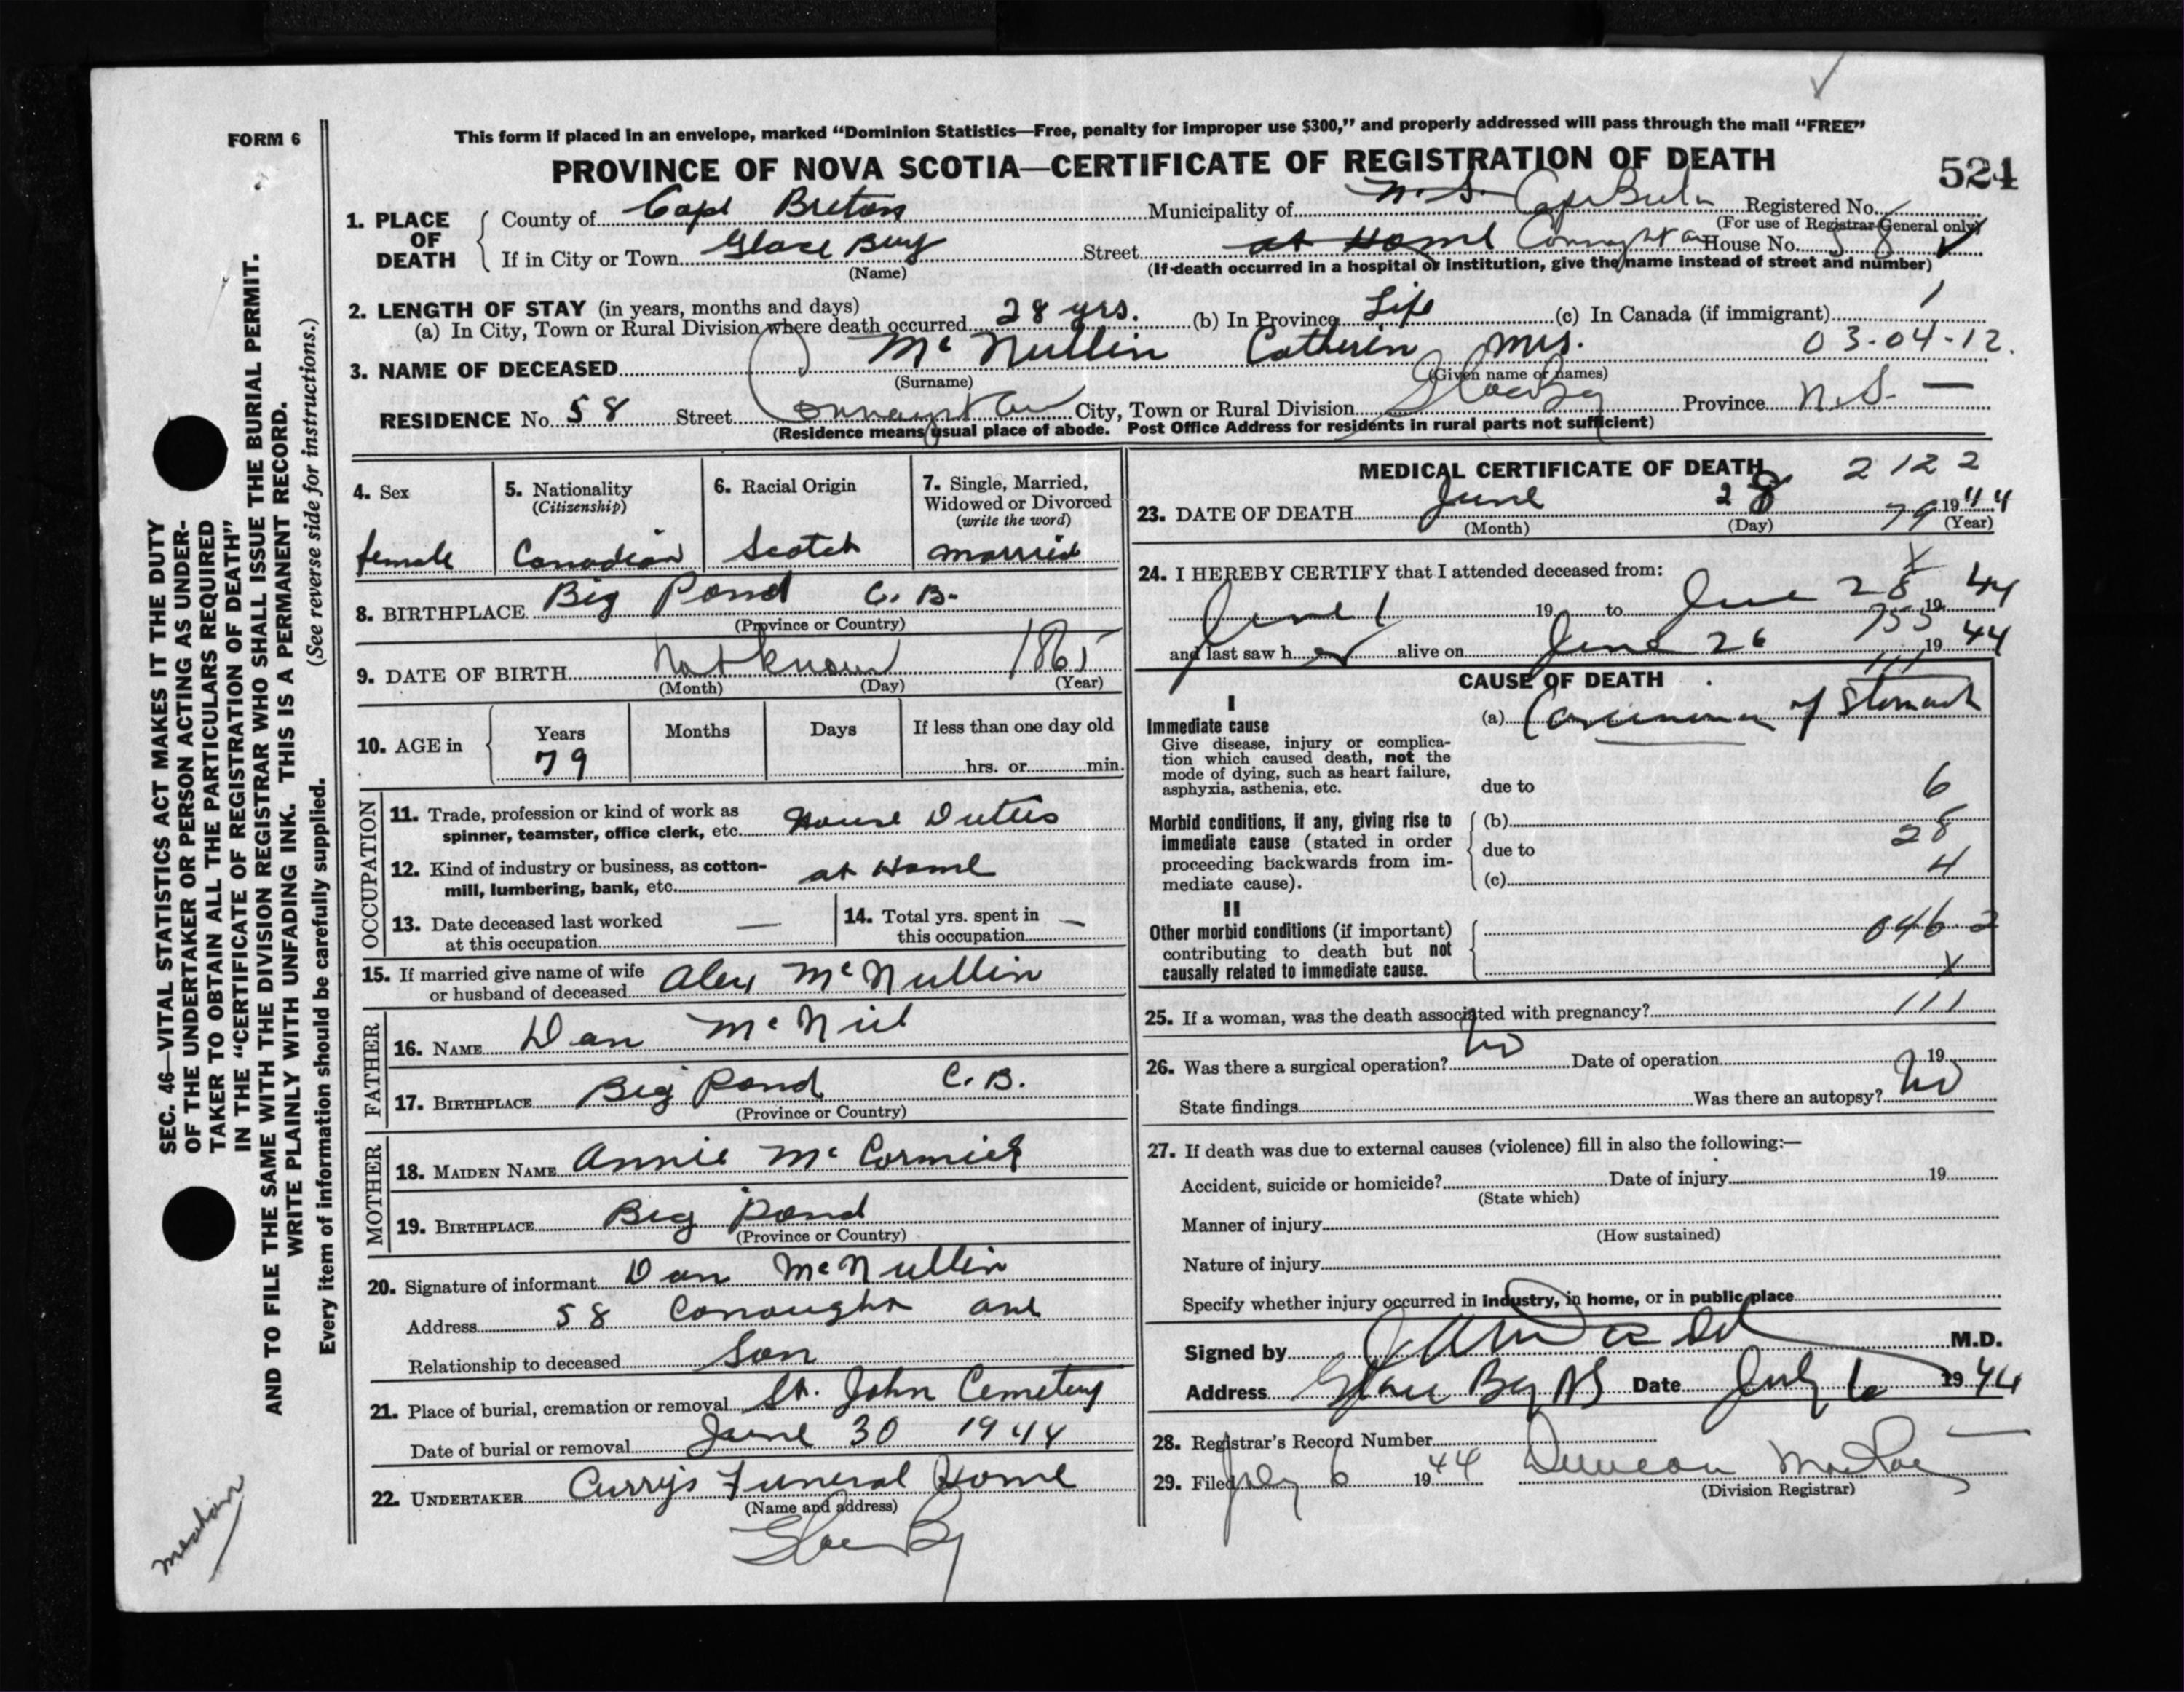 FORM 6
This form if placed in an envelope, marked “Dominion Statistics—Free, penalty for improper use $300,” and properly addressed will pass through the mail “FREE”
PROVINCE OF NOVA SCOTIA—CERTIFICATE OF REGISTRATION OF DEATH
524
1. PLACE OF DEATH
County of Cape Breton Municipality of N.S. Cape Breton Registered No.
(For use of Registrar General only)
If in City or Town Glace Bay Street at Home Connaught av House No. 58
(Name) (If death occurred in a hospital or institution, give the name instead of street and number)
2. LENGTH OF STAY (in years, months and days)
(a) In City, Town or Rural Division where death occurred 28 yrs. (b) In Province Life (c) In Canada (if immigrant)
3. NAME OF DECEASED Mc Nullin Catherin Mrs. 03-04-12.
(Surname) (Given name or names)
RESIDENCE No. 58 Street Connaught av City, Town or Rural Division Glace Bay Province N.S. —
(Residence means usual place of abode. Post Office Address for residents in rural parts not sufficient)
4. Sex female
5. Nationality (Citizenship) Canadian
6. Racial Origin Scotch
7. Single, Married, Widowed or Divorced (write the word) married
8. BIRTHPLACE Big Pond C. B.
(Province or Country)
9. DATE OF BIRTH Not known 1865
(Month) (Day) (Year)
10. AGE in Years 79 Months Days If less than one day old
hrs. or min.
OCCUPATION
11. Trade, profession or kind of work as
spinner, teamster, office clerk, etc. House Duties
12. Kind of industry or business, as cotton-
mill, lumbering, bank, etc. at Home
13. Date deceased last worked
at this occupation —
14. Total yrs. spent in
this occupation —
15. If married give name of wife
or husband of deceased Alex McNullin
FATHER
16. NAME Dan McNiel
17. BIRTHPLACE Big Pond C. B.
(Province or Country)
MOTHER
18. MAIDEN NAME Annie Mc Cormick
19. BIRTHPLACE Big Pond
(Province or Country)
20. Signature of informant Dan McNullin
Address 58 Conought ave
Relationship to deceased Son
21. Place of burial, cremation or removal St. John Cemetery
Date of burial or removal June 30 1944
22. UNDERTAKER Curry's Funeral Home
(Name and address)
Glace Bay
MEDICAL CERTIFICATE OF DEATH
2122
23. DATE OF DEATH June 28 79 1944
(Month) (Day) (Year)
24. I HEREBY CERTIFY that I attended deceased from:
June 1 19 to June 28 19 44
and last saw her alive on June 26 19 44
CAUSE OF DEATH
I
Immediate cause
Give disease, injury or complica-
tion which caused death, not the
mode of dying, such as heart failure,
asphyxia, asthenia, etc.
(a) Carcinoma of Stomach
due to 6
Morbid conditions, if any, giving rise to
immediate cause (stated in order
proceeding backwards from im-
mediate cause).
(b) 28
due to
(c) 4
II
Other morbid conditions (if important)
contributing to death but not
causally related to immediate cause.
046.2
X
25. If a woman, was the death associated with pregnancy? 111
26. Was there a surgical operation? No Date of operation 19
State findings Was there an autopsy? No
27. If death was due to external causes (violence) fill in also the following:—
Accident, suicide or homicide? Date of injury 19
(State which)
Manner of injury
(How sustained)
Nature of injury
Specify whether injury occurred in industry, in home, or in public place
Signed by M.D.
Address Glace Bay NS Date July 6 1944
28. Registrar's Record Number
29. Filed July 6 1944 Duncan
(Division Registrar)
SEC. 46—VITAL STATISTICS ACT MAKES IT THE DUTY
OF THE UNDERTAKER OR PERSON ACTING AS UNDER-
TAKER TO OBTAIN ALL THE PARTICULARS REQUIRED
IN THE “CERTIFICATE OF REGISTRATION OF DEATH”
AND TO FILE THE SAME WITH THE DIVISION REGISTRAR WHO SHALL ISSUE THE BURIAL PERMIT.
WRITE PLAINLY WITH UNFADING INK. THIS IS A PERMANENT RECORD.
Every item of information should be carefully supplied. (See reverse side for instructions.)